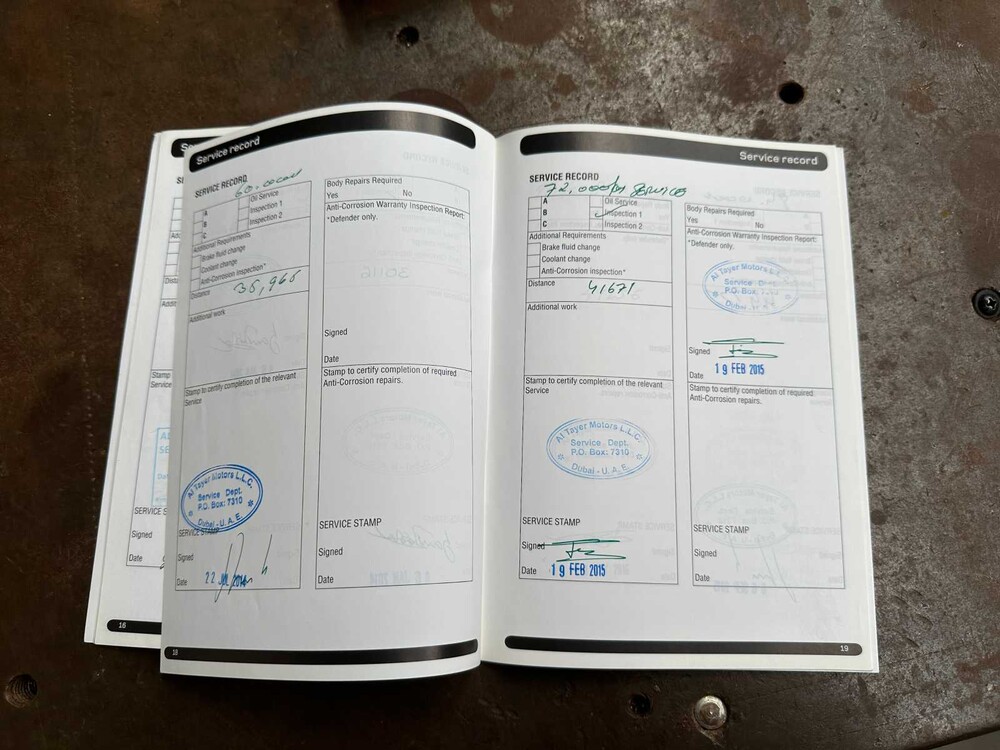 Service record
SERVICE RECORD
60,000
A
B
C
Oil Service
Inspection 1
Inspection 2
Additional Requirements
Brake fluid change
Coolant change
Anti-Corrosion inspection*
Distance
35,965
Additional work
Stamp to certify completion of the relevant
Service
Al Tayer Motors L.L.C.
Service Dept.
P.O. Box: 7310
Dubai - U.A.E.
SERVICE STAMP
Signed
Date
22 JUL 2014
Body Repairs Required
Yes No
Anti-Corrosion Warranty Inspection Report:
*Defender only.
Signed
Date
Stamp to certify completion of required
Anti-Corrosion repairs.
SERVICE STAMP
Signed
Date
18
Service record
SERVICE RECORD
72,000 km Service
A
B
C
Oil Service
Inspection 1
Inspection 2
Additional Requirements
Brake fluid change
Coolant change
Anti-Corrosion inspection*
Distance
41671
Additional work
Stamp to certify completion of the relevant
Service
Al Tayer Motors L.L.C.
Service Dept.
P.O. Box: 7310
Dubai - U.A.E.
SERVICE STAMP
Signed
Date
19 FEB 2015
Body Repairs Required
Yes No
Anti-Corrosion Warranty Inspection Report:
*Defender only.
Al Tayer Motors L.L.C.
Service Dept.
P.O. Box: 7310
Dubai - U.A.E.
Signed
Date
19 FEB 2015
Stamp to certify completion of required
Anti-Corrosion repairs.
SERVICE STAMP
Signed
Date
19
Distance
Stamp
SERVICE S
Signed
Date
16